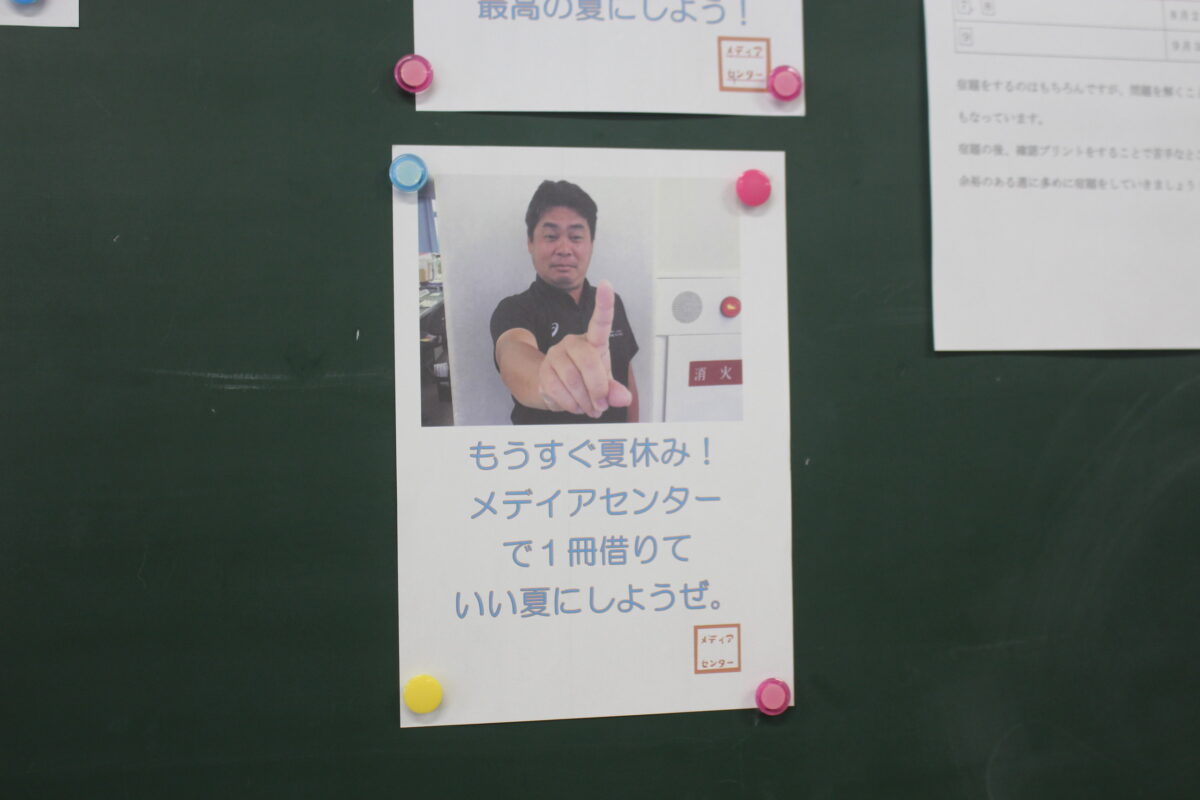 最高の夏にしよう！
メディア
センター
消火
もうすぐ夏休み！
メデイアセンター
で１冊借りて
いい夏にしようぜ。
メディア
センター
宿題をするのはもちろんですが、問題を解くこ
もなっています。
宿題の後、確認プリントをすることで苦手なとこ
余裕のある週に多めに宿題をしていきましょう